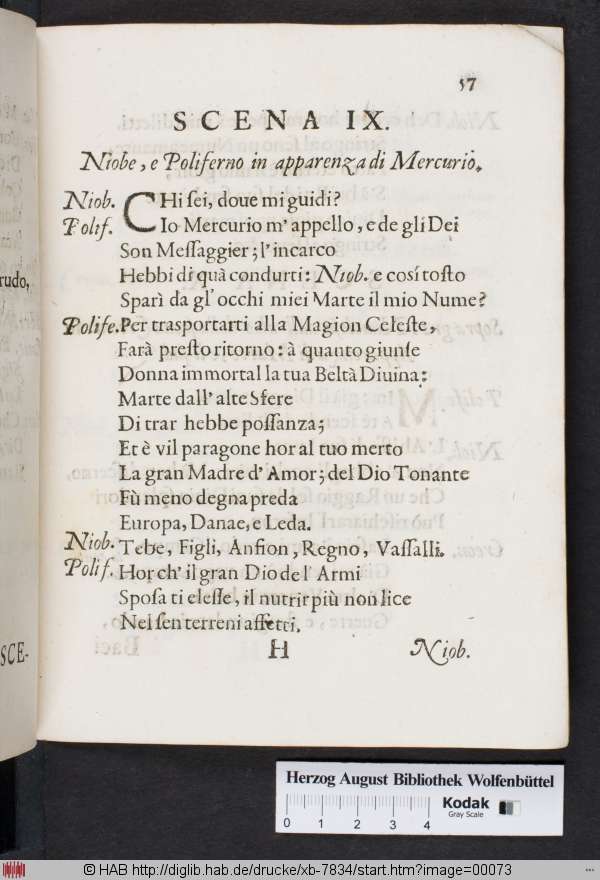 57
SCENA IX.
Niobe, e Poliferno in apparenza di Mercurio.
Niob. CHi sei, doue mi guidi?
Polif. Io Mercurio m' appello, e de gli Dei
Son Messaggier; l' incarco
Hebbi di quà condurti: Niob. e cosí tosto
Sparì da gl' occhi miei Marte il mio Nume?
Polife. Per trasportarti alla Magion Celeste,
Farà presto ritorno: à quanto giunse
Donna immortal la tua Beltà Diuina:
Marte dall' alte Sfere
Di trar hebbe possanza;
Et è vil paragone hor al tuo merto
La gran Madre d' Amor; del Dio Tonante
Fù meno degna preda
Europa, Danae, e Leda.
Niob. Tebe, Figli, Anfion, Regno, Vassalli.
Polif. Hor ch' il gran Dio de l' Armi
Sposa ti elesse, il nutrir più non lice
Nel sen terreni affetti.
H Niob.
rudo,
SCE-
Herzog August Bibliothek Wolfenbüttel
0 1 2 3 4
Kodak
Gray Scale
© HAB http://diglib.hab.de/drucke/xb-7834/start.htm?image=00073